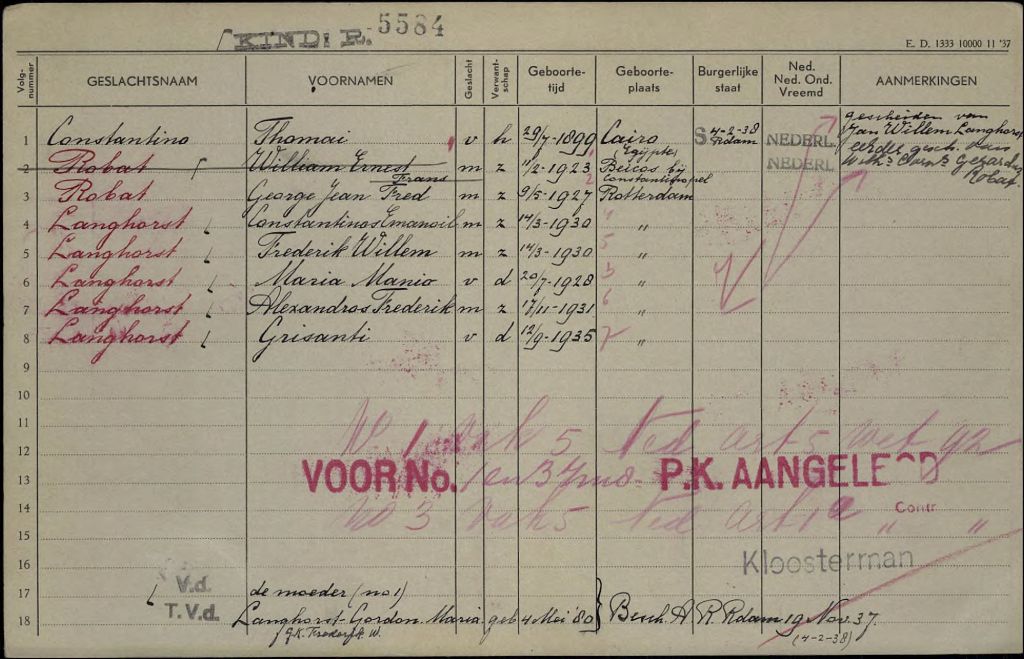 KINDI R. 5584
E. D. 1333 10000 11 '37
Volg-nummer GESLACHTSNAAM VOORNAMEN Geslacht Verwant-schap Geboorte-tijd Geboorte-plaats Burgerlijke staat Ned. Ned. Ond. Vreemd AANMERKINGEN
1 Constantino Thomai v h 29/7-1899 Cairo Egypte S 4-2-38 Rdam NEDERL. gescheiden van Jan Willem Langhorst
2 Robat William Ernest Frans m z 11/2-1923 Beicos bij Constantinopel NEDERL eerder gesch. van
3 Robat George Jean Fred m z 9/5-1927 Rotterdam
4 Langhorst Constantinos Emanoil m z 14/3-1930 "
5 Langhorst Frederik Willem m z 14/3-1930 " 5
6 Langhorst Maria Manio v d 20/7-1928 " 3
7 Langhorst Alexandros Frederik m z 17/11-1931 " 6
8 Langhorst Grisanti v d 12/9-1935 " 7
9
10
11
No 1 vak 5 Ned art 5 wet 92
12
VOOR No. 1 en 3 P.K. AANGELEGD
13
14
No 3 vak 5 Ned art 1a " Contr. "
15
16 Kloosterman
V.d.
17 de moeder (no 1)
T.V.d.
18 Langhorst-Gordon Maria geb 4 Mei '80 } Besch. A R. Rdam 19 Nov. 37.
g.k. Frederik W. (4-2-38)